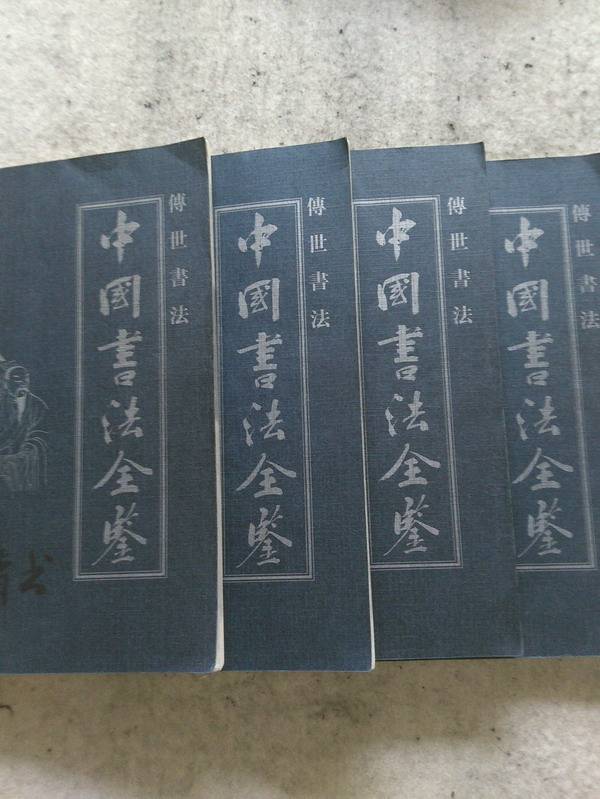 傳世書法
中國書法全鑒
傳世書法
中國書法全鑒
傳世書法
中國書法全鑒
傳世書法
中國書法全鑒